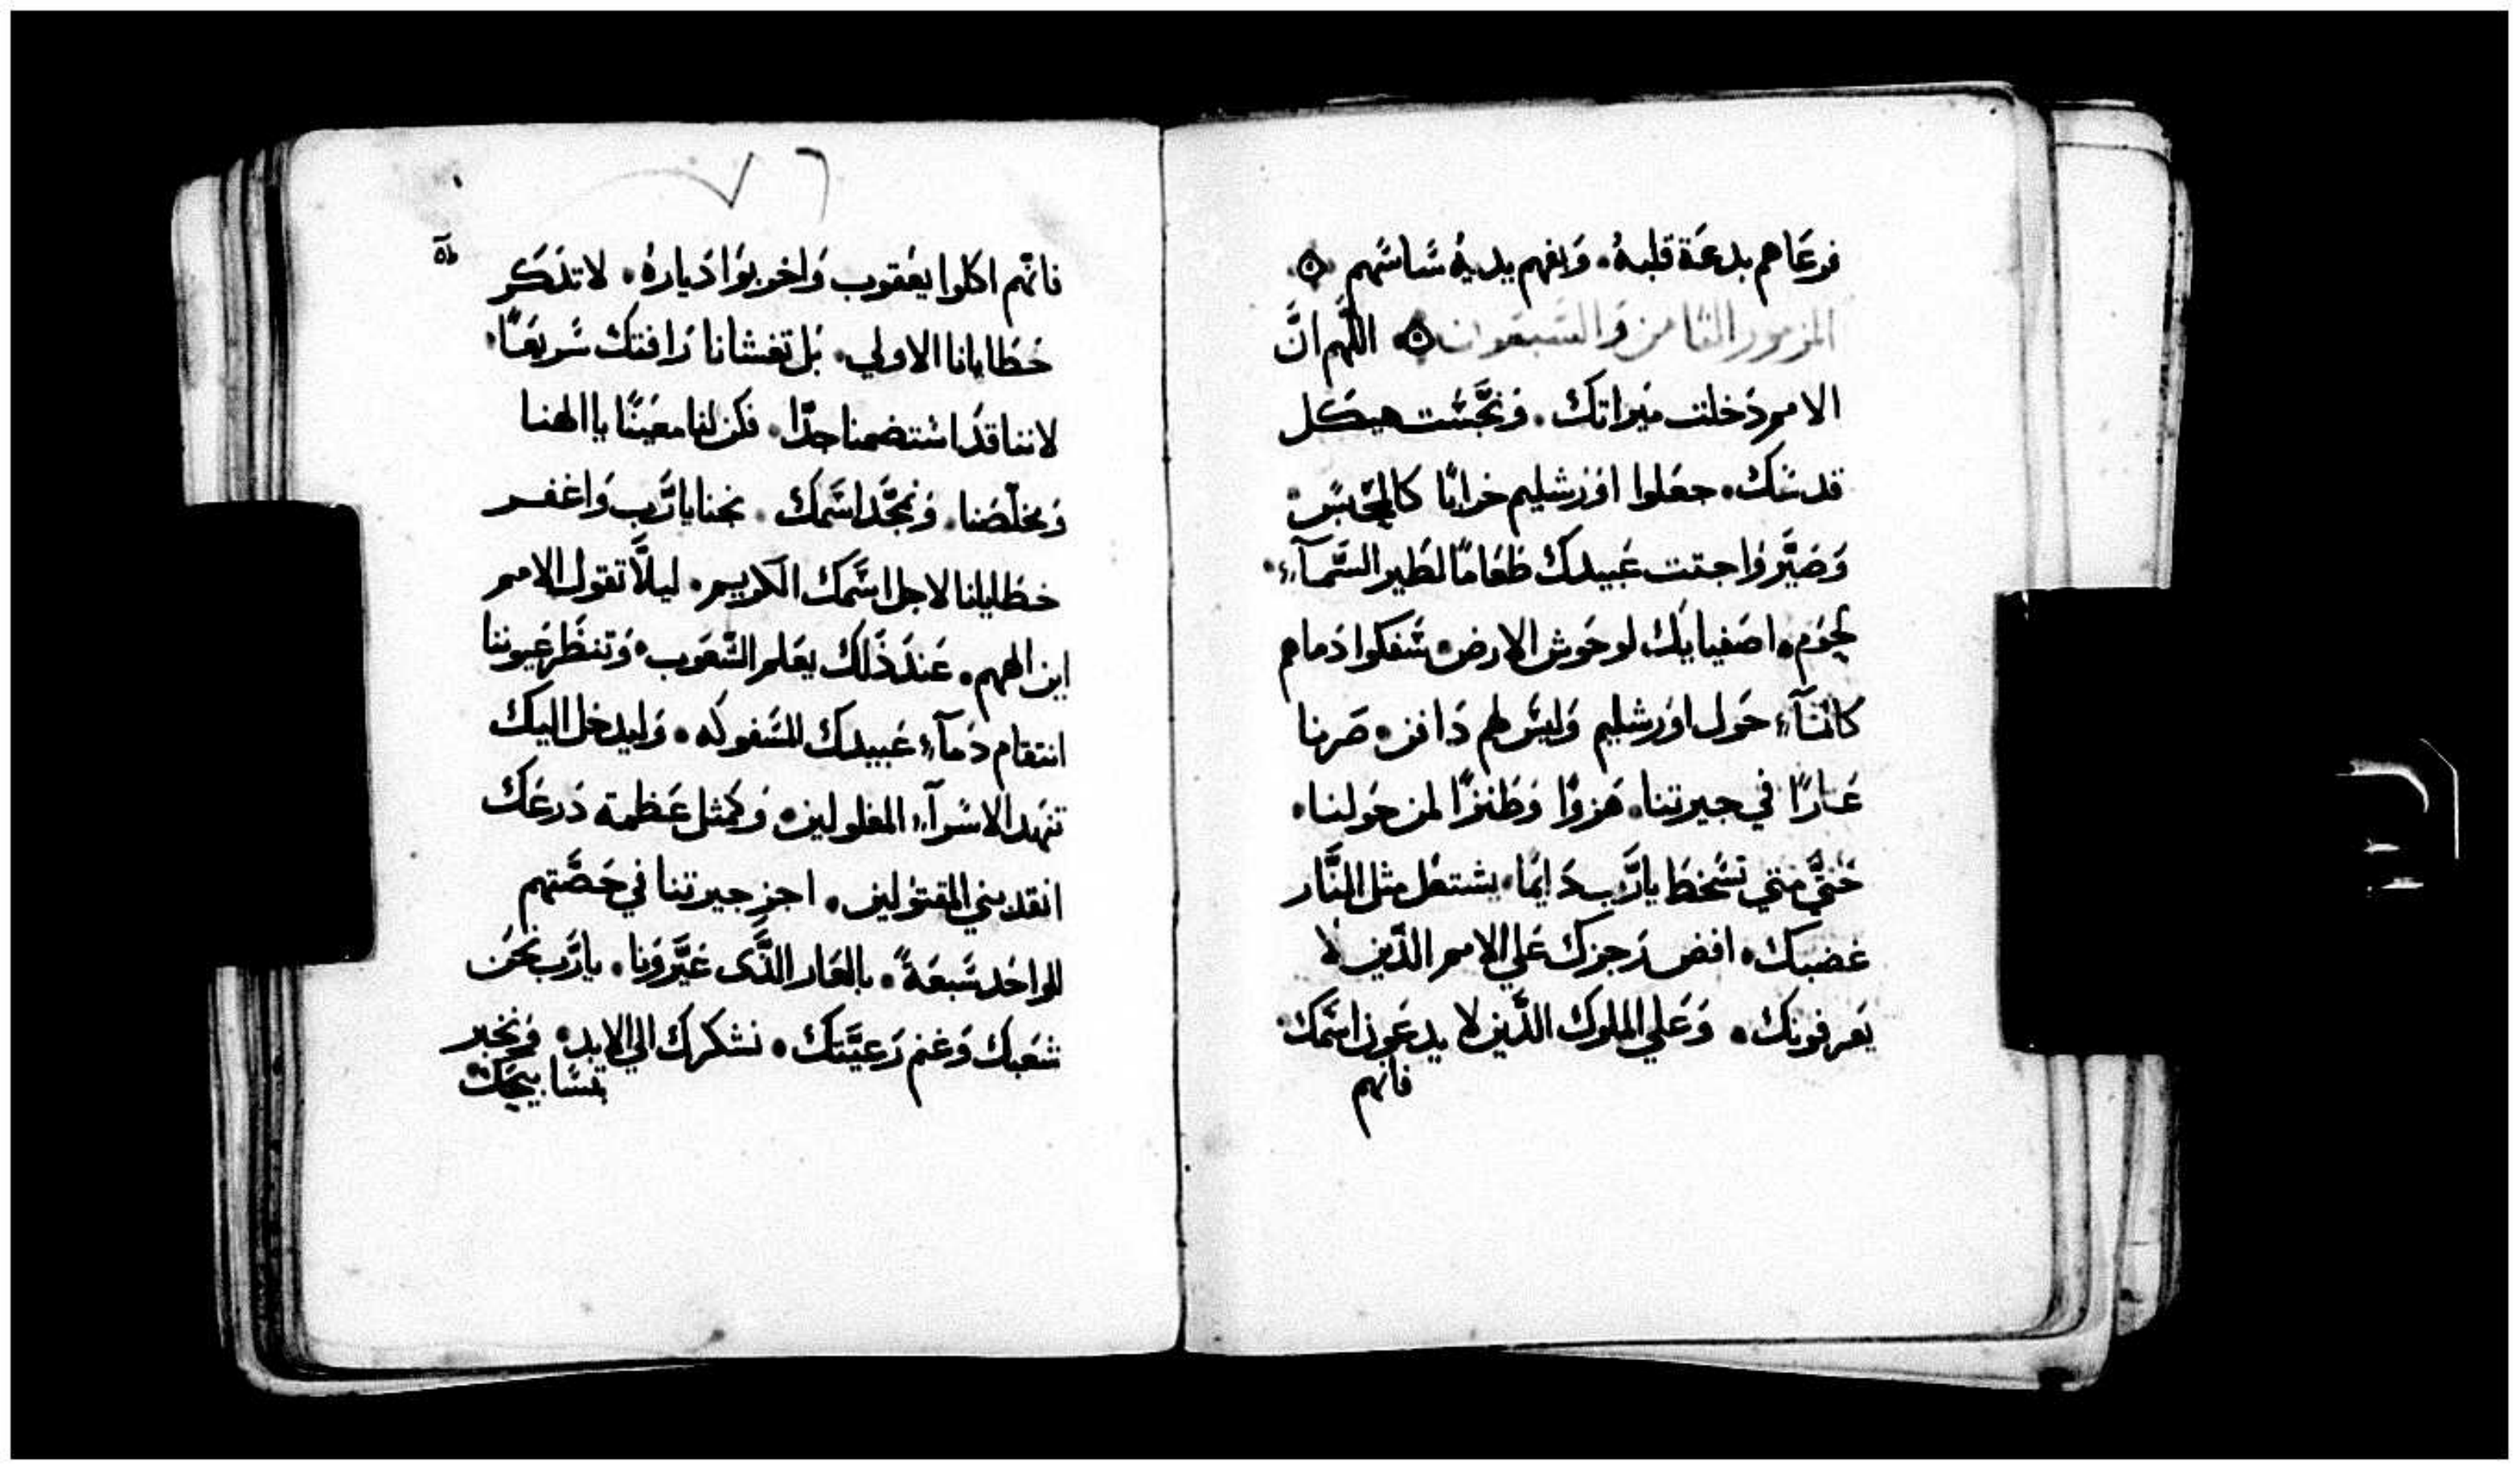 فرعاهم بدعة قلبهُ، وَبفهم يديهُ سَاسَهم
المزمور الثامن وَالسَبعون اللّهم انَّ
الامم دَخلت ميراتك. وَنجَّسَت هيكل
قدسَك. جعَلوا اوَرشليم خرابًا كالمِحَبسَ
وَصَيَّروَا جتت عَبيدك طعَامًا لطَير السَّمآء.
لحوَم اصَفيايك لوحَوش الارض سَفكوا دَماهم
كالمآء حَول اوَرشليم وَليسَ لهم دَافن صَرنا
عَارًا في جيرتنا. هَزوًا وَطَنزًا لمن حَولنا.
حَتيَّ متي تسَخط يارَّب دَايمًا. يشتعَل مثل النَّار
غضبك. افض رَجزك عَلي الامم الذَّين لا
يَعرفونك. وَعَلي الملوك الذَّين لا يدعَون اسَمك
فانهم
٧٦
فانّهم اكلوا يعَقوب وَاخربوَا دَيارهُ. لا تذكَر
خَطايانا الاولي. بَل تغشانا رَافتك سَريعًا.
لاننا قدَ اتضعنا جدًّا. فكن لنا معَينًا ياالهنا
وَمخلّصَنا. وَنمجَّد اسَمك. نجنا يارَّب وَاغفر
خطايانا لاجل اسَمك الكريم. ليلاَّ تقول الامم
اين الههم. عَند ذَلك يعَلم الشَعَوب وَتنظَر عَيوننا
انتقام دَمآء عَبيدك المسَفوكه. وَليدخل اليك
تنهد الاسَرآء المغلولين. وَكمثل عَظمة دَرعَك
انقد بني المقتولين. اجزِ جيرتنا في حَصَّتهم
للواحَد سَبعَةً. بالعَار الذَّى عَيَّروَنا. يارَّب نحَن
شعَبك وَغنم رَعيَّتك. نشكرك الي الابد. وَنخبر
بتسَابيحَك